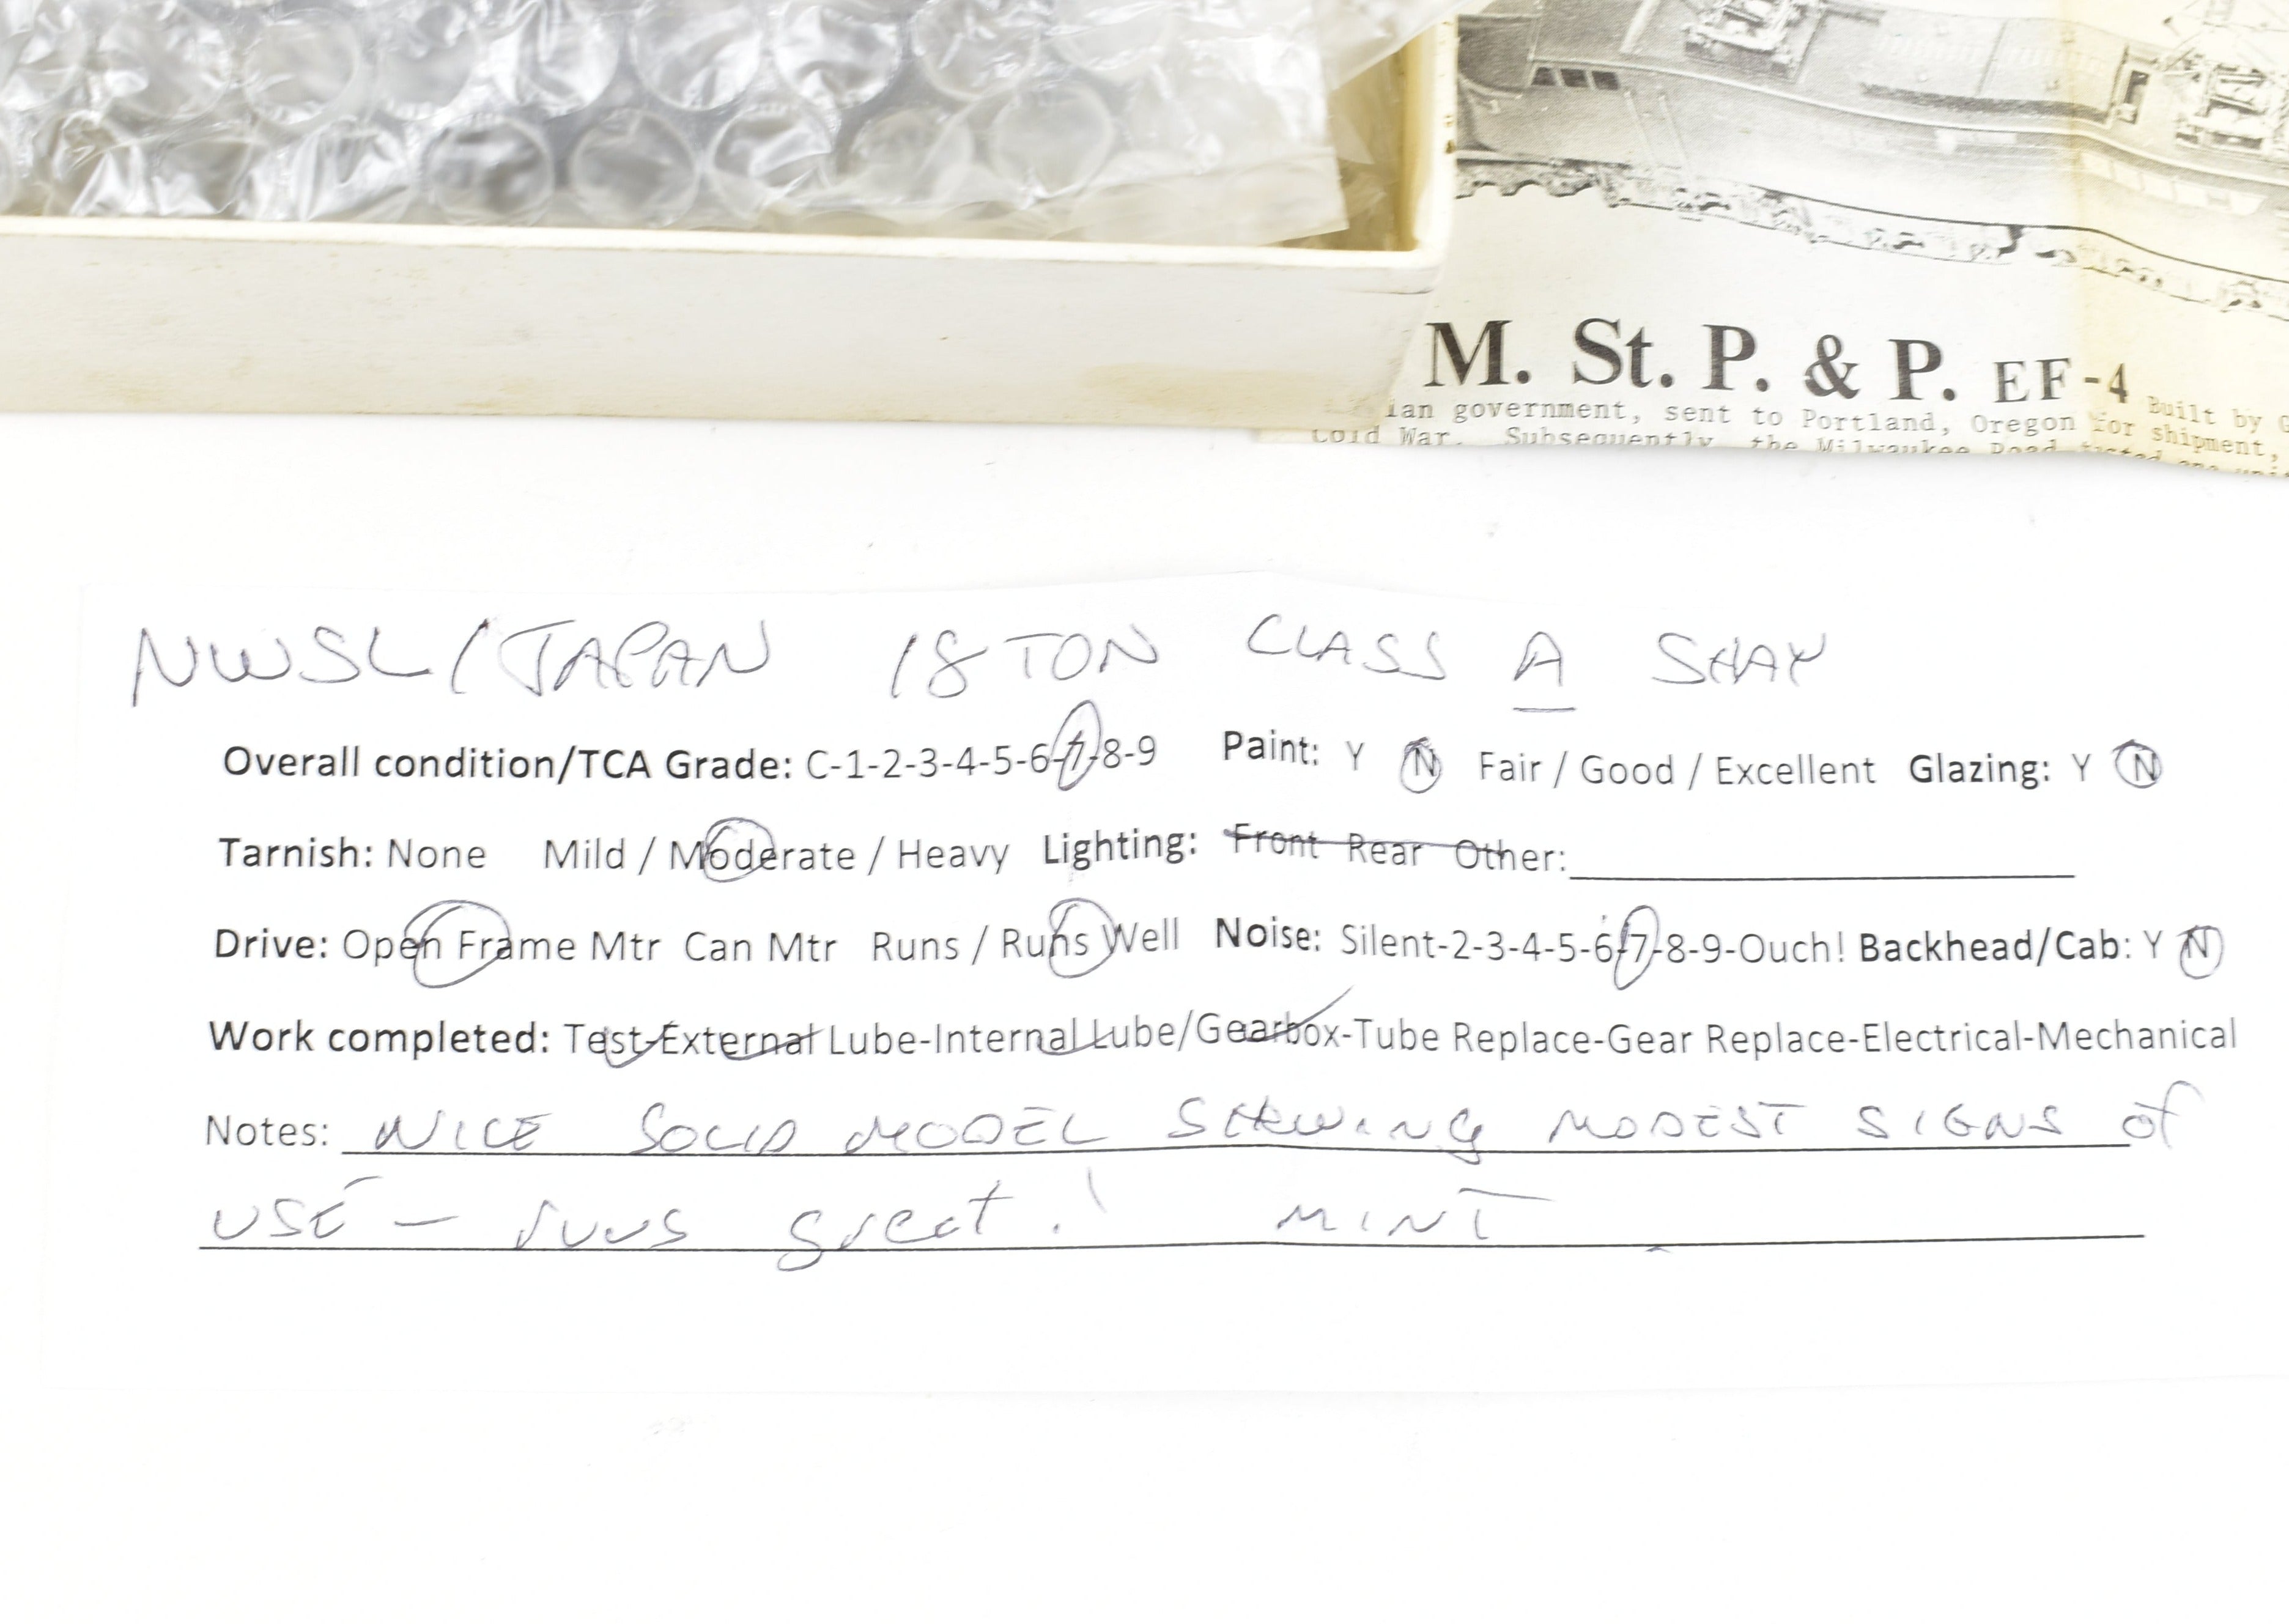 M. St. P. & P. EF-4 Built by G
ian government, sent to Portland, Oregon for shipment,
Cold War. Subsequently, the Milwaukee Road tested one unit
NWSL/JAPAN 18 TON CLASS A SHAY
Overall condition/TCA Grade: C-1-2-3-4-5-6-7-8-9 Paint: Y N Fair / Good / Excellent Glazing: Y N
Tarnish: None Mild / Moderate / Heavy Lighting: Front Rear Other:
Drive: Open Frame Mtr Can Mtr Runs / Runs Well Noise: Silent-2-3-4-5-6-7-8-9-Ouch! Backhead/Cab: Y N
Work completed: Test-External Lube-Internal Lube/Gearbox-Tube Replace-Gear Replace-Electrical-Mechanical
Notes: NICE SOLID MODEL SHOWING MODEST SIGNS of
USE - runs great! MINT